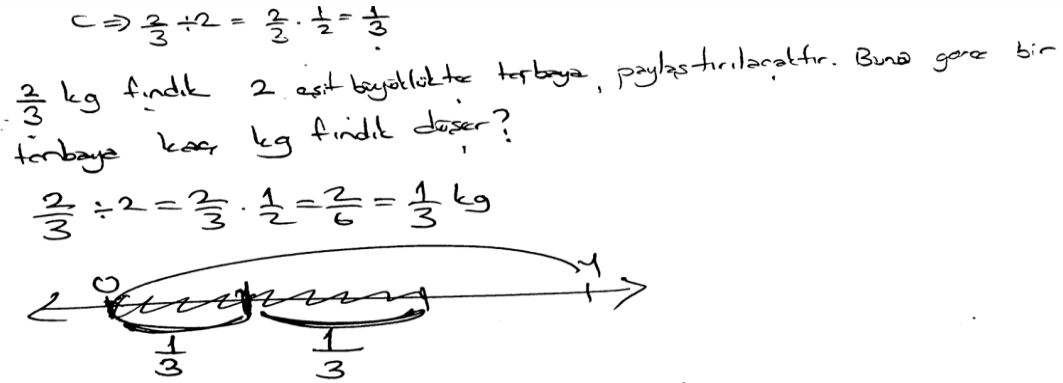 C ⇒ 2/3 ÷ 2 = 2/3 · 1/2 = 1/3
2/3 kg fındık 2 eşit büyüklükte torbaya paylaştırılacaktır. Buna göre bir
torbaya kaç kg fındık düşer?
2/3 ÷ 2 = 2/3 · 1/2 = 2/6 = 1/3 kg
0 1
1/3 1/3